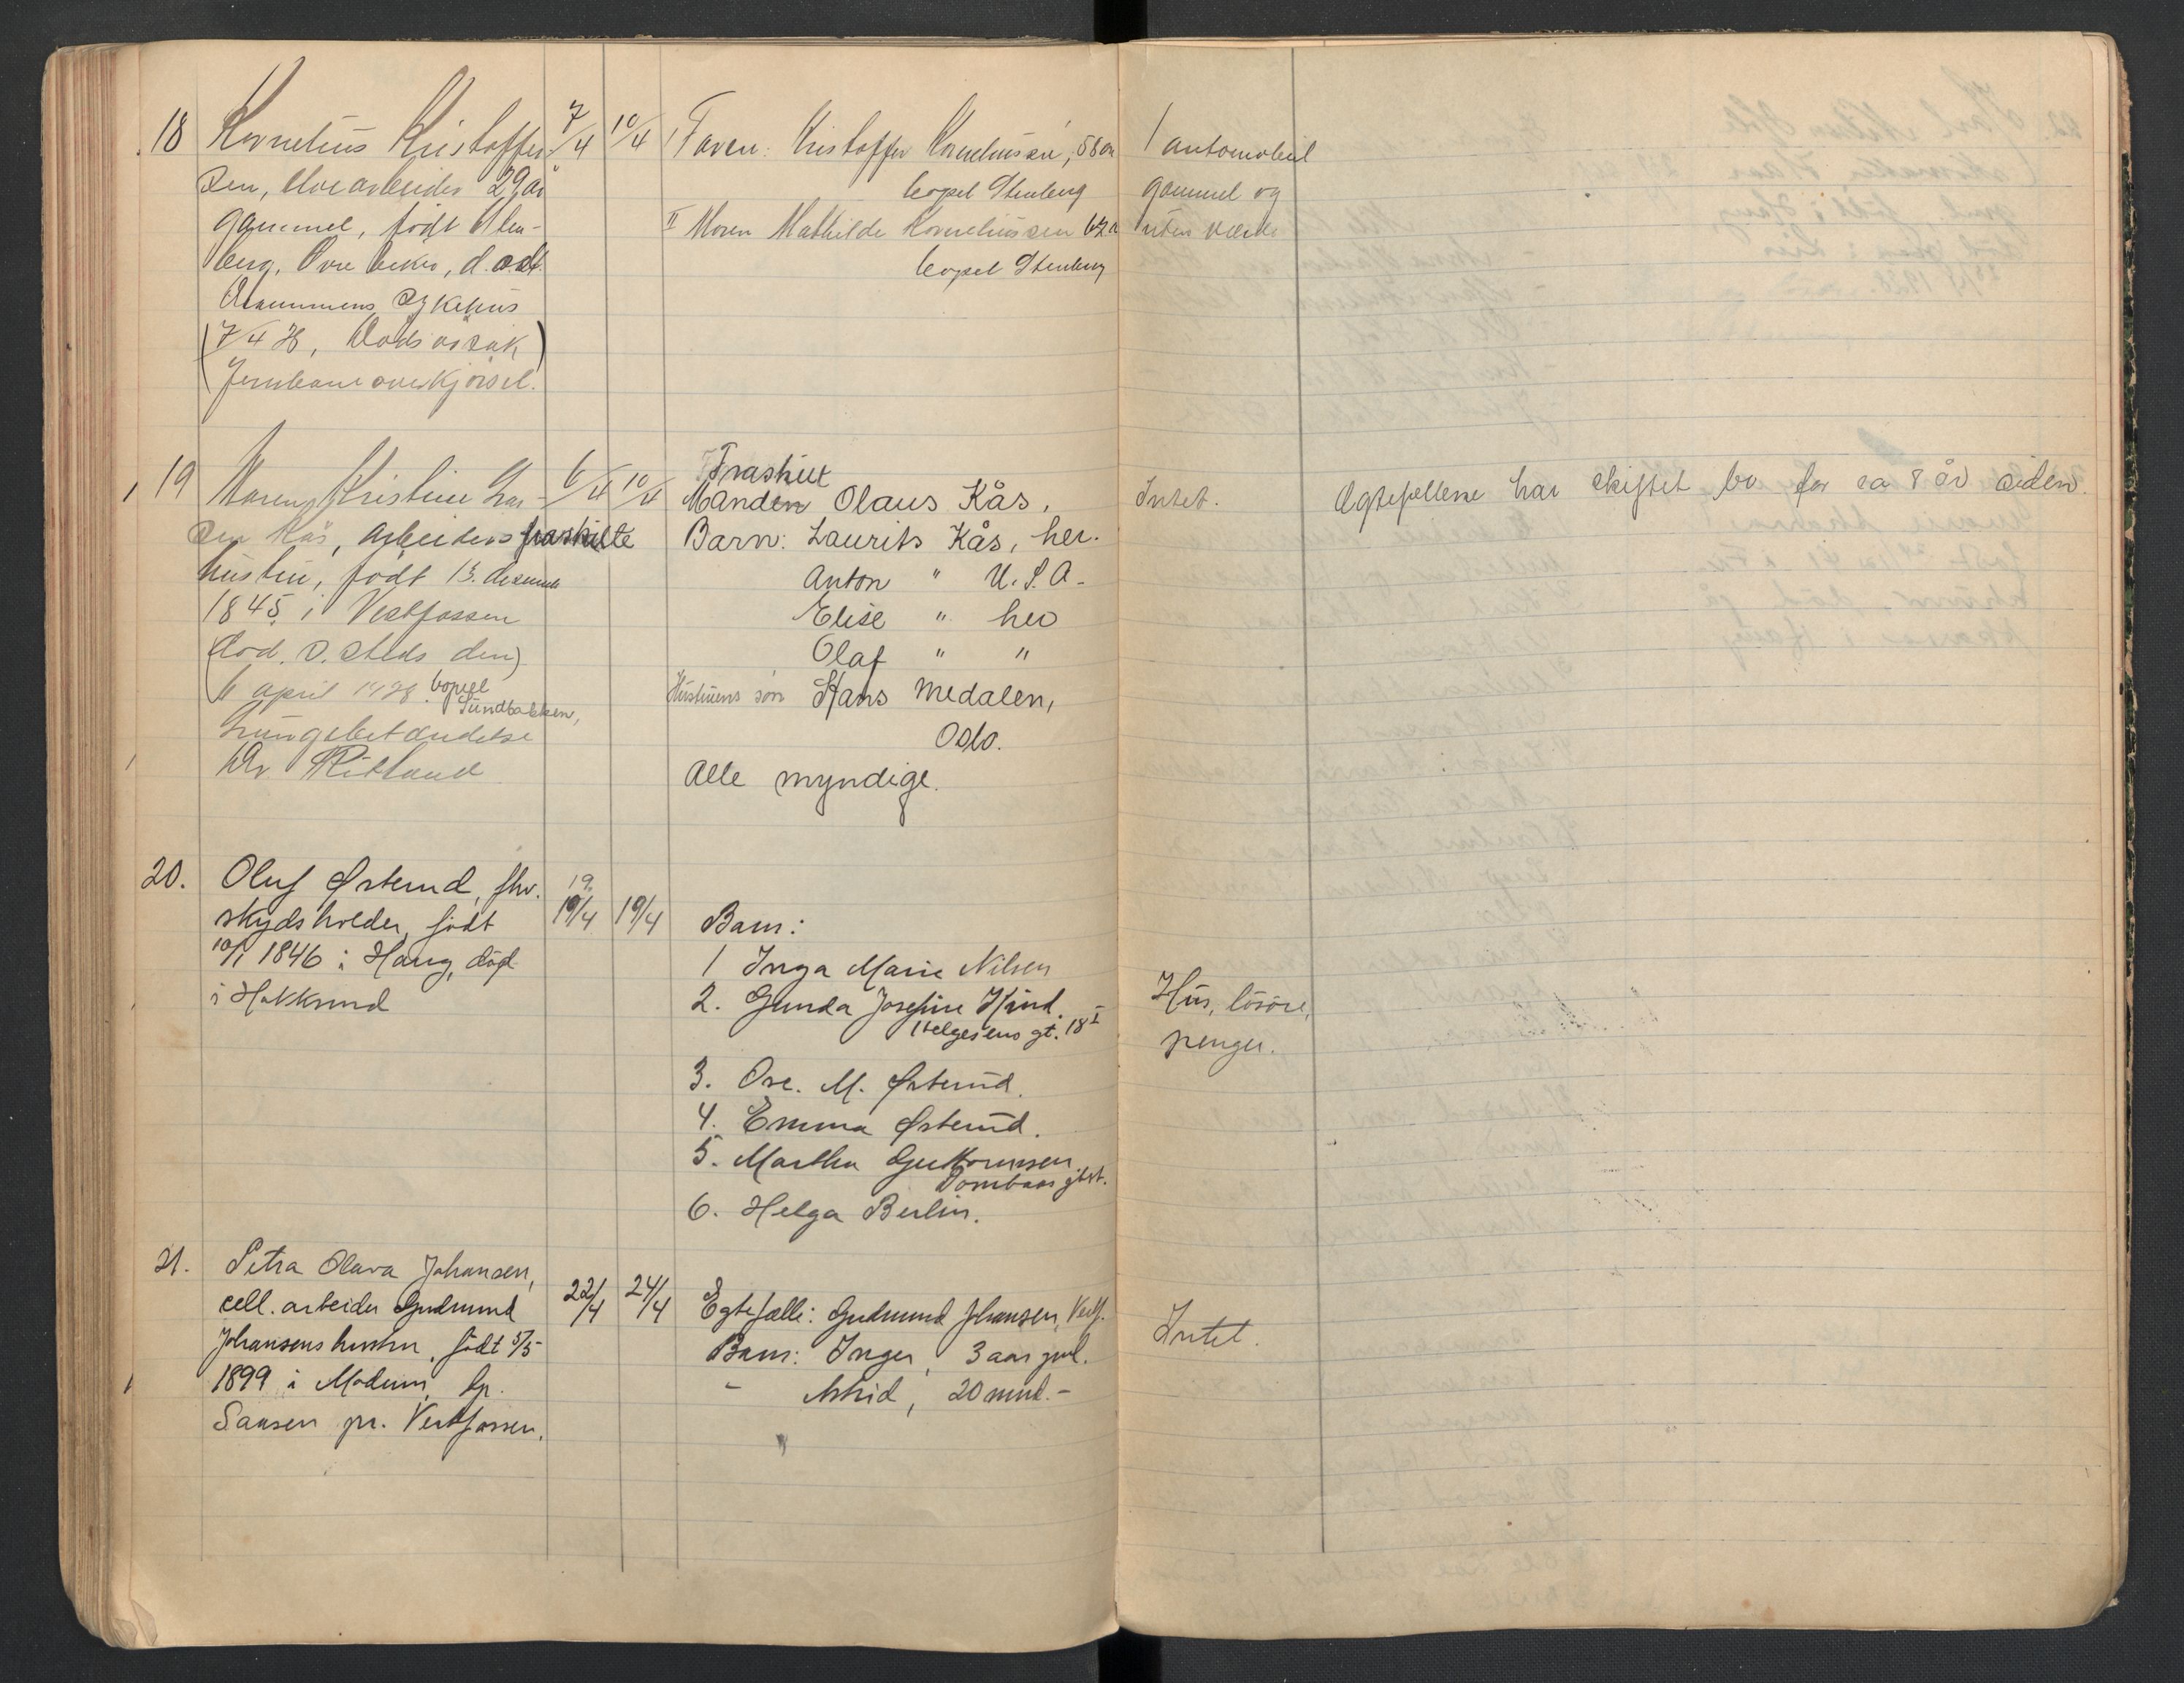 18 Kornelius Kristoffer- 7/4 10/4 I Faren: Kristoffer Korneliussen, 58 år 1 automobil
sen, elvearbeider 29 år bopel Stenberg gammel og
gammel, født Sten- II Moren Mathilde Korneliussen 62 å uten værdi
berg, Øvre Eiker, d. bopel Stenberg
Drammens sykehus
(7/4 28, Dødsårsak)
Jernbaneoverkjørsel.
19 Maren Kristine Lar- 6/4 10/4 Fraskilt
Manden Olaus Kås, Intet. Egtefellene har skiftet bo for ca 8 år siden.
sen Kås, arbeiders fraskilte Barn: Laurits Kås, her.
hustru, født 13. desember Anton " U.S.A.
1845 i Vestfossen Elise " her
(død. s. steds den) Olaf " "
6 april 1928. bopel Sundbakken, Hustruens søn Hans Medalen,
Lungebetændelse Oslo.
Dr. Ritland Alle myndige.
20. Oluf Østerud, fhv. 19.
skydsholder, født 19/4 19/4 Barn:
10/1 1846 i Haug, død 1 Inga Marie Nilsen
i Hokksund 2. Gunda Josefine Hind. Hus, løsøre,
Helgesens gt. 18 I penger.
3. Ove. M. Østerud.
4. Emma Østerud.
5. Martha Guttormsen
Dombaas
6. Helga Berlin.
21. Petra Olava Johansen,
cell. arbeider Gudmund 22/4 24/4 Egtefælle: Gudmund Johansen, Vestf. Intet.
Johansens hustru, født 5/5- Barn: Inger, 3 aar gml.
1899 i Modum, bp. - Astrid, 20 mnd. -
Sansen pr. Vestfossen.